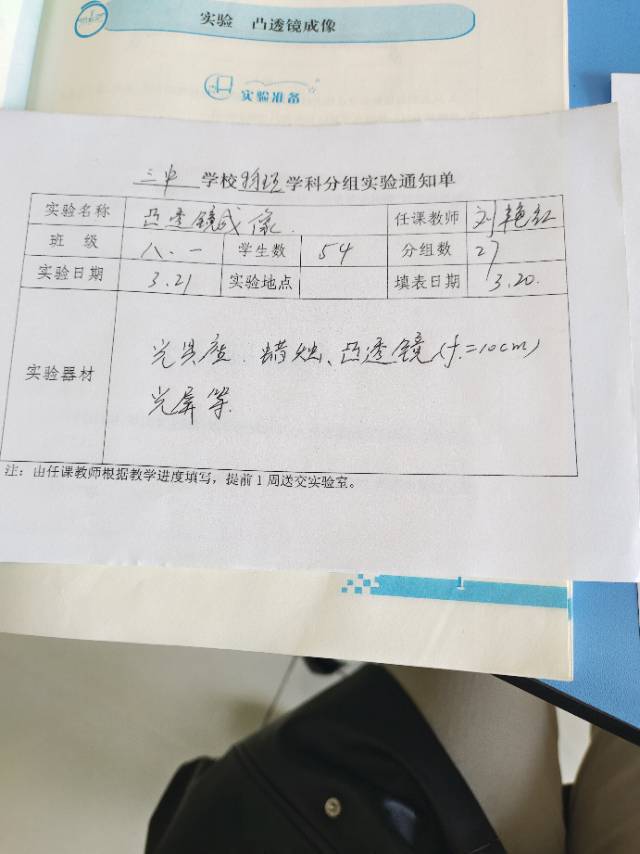 实验 凸透镜成像
实验准备
三中 学校 物理 学科分组实验通知单
实验名称 凸透镜成像. 任课教师 刘艳红
班 级 八.一 学生数 54 分组数 27
实验日期 3.21 实验地点 填表日期 3.20.
实验器材
光具座. 蜡烛、凸透镜(f=10cm)
光屏等.
注：由任课教师根据教学进度填写，提前1周送交实验室。